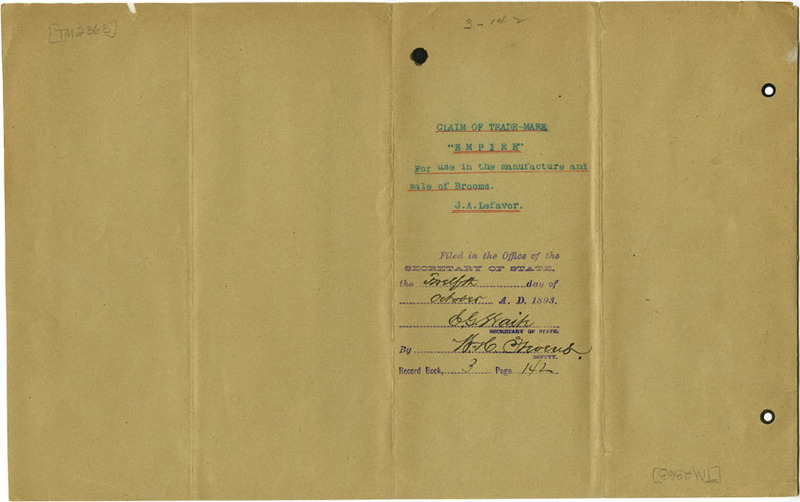 [TM2363]
3-142
CLAIM OF TRADE-MARK
"EMPIRE"
For use in the manufacture and
sale of Brooms.
J.A.Lefavor.
Filed in the Office of the
SECRETARY OF STATE,
the Twelfth day of
October A. D. 1893.
E.G. Waite
SECRETARY OF STATE.
By W.C.
DEPUTY.
Record Book, 3 Page 142
[TM2363]